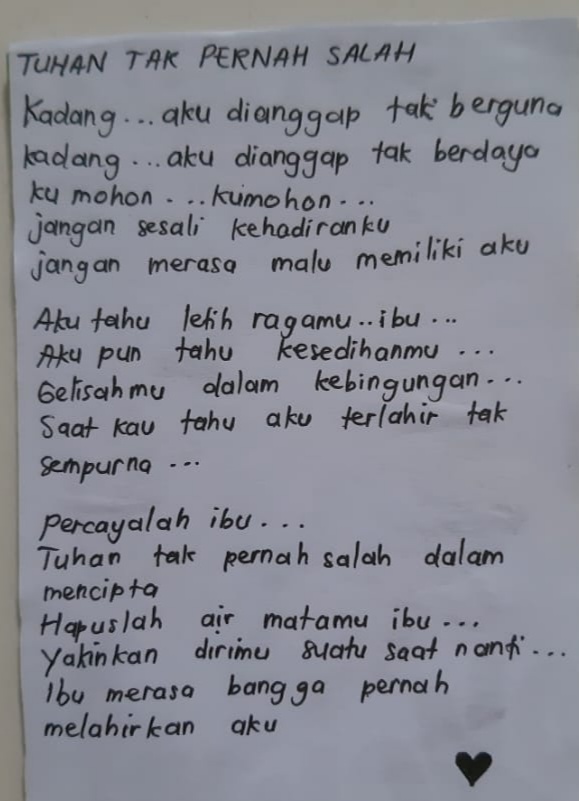 TUHAN TAK PERNAH SALAH
Kadang...aku dianggap tak berguna
kadang...aku dianggap tak berdaya
ku mohon...kumohon...
jangan sesali kehadiranku
jangan merasa malu memiliki aku
Aku tahu letih ragamu..ibu...
Aku pun tahu kesedihanmu...
Gelisahmu dalam kebingungan...
Saat kau tahu aku terlahir tak
sempurna...
percayalah ibu...
Tuhan tak pernah salah dalam
mencipta
Hapuslah air matamu ibu...
Yakinkan dirimu suatu saat nanti...
Ibu merasa bangga pernah
melahirkan aku